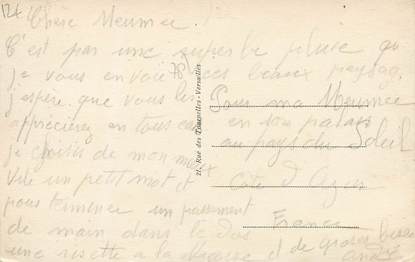 124
Chère Meumée
C'est par une superbe pluie que
je vous envoie ces beaux paysag.
j'espère que vous les
apprécierez en tous cas
je choisis de mon mieux
Vite un petit mot et
pour terminer un passement
de main dans le dos
une risette à la
Pour ma Meumée
en son palais
au pays du Soleil
Côte d'Azur
France
et de gros
André
21, Rue des Tournelles - Versailles